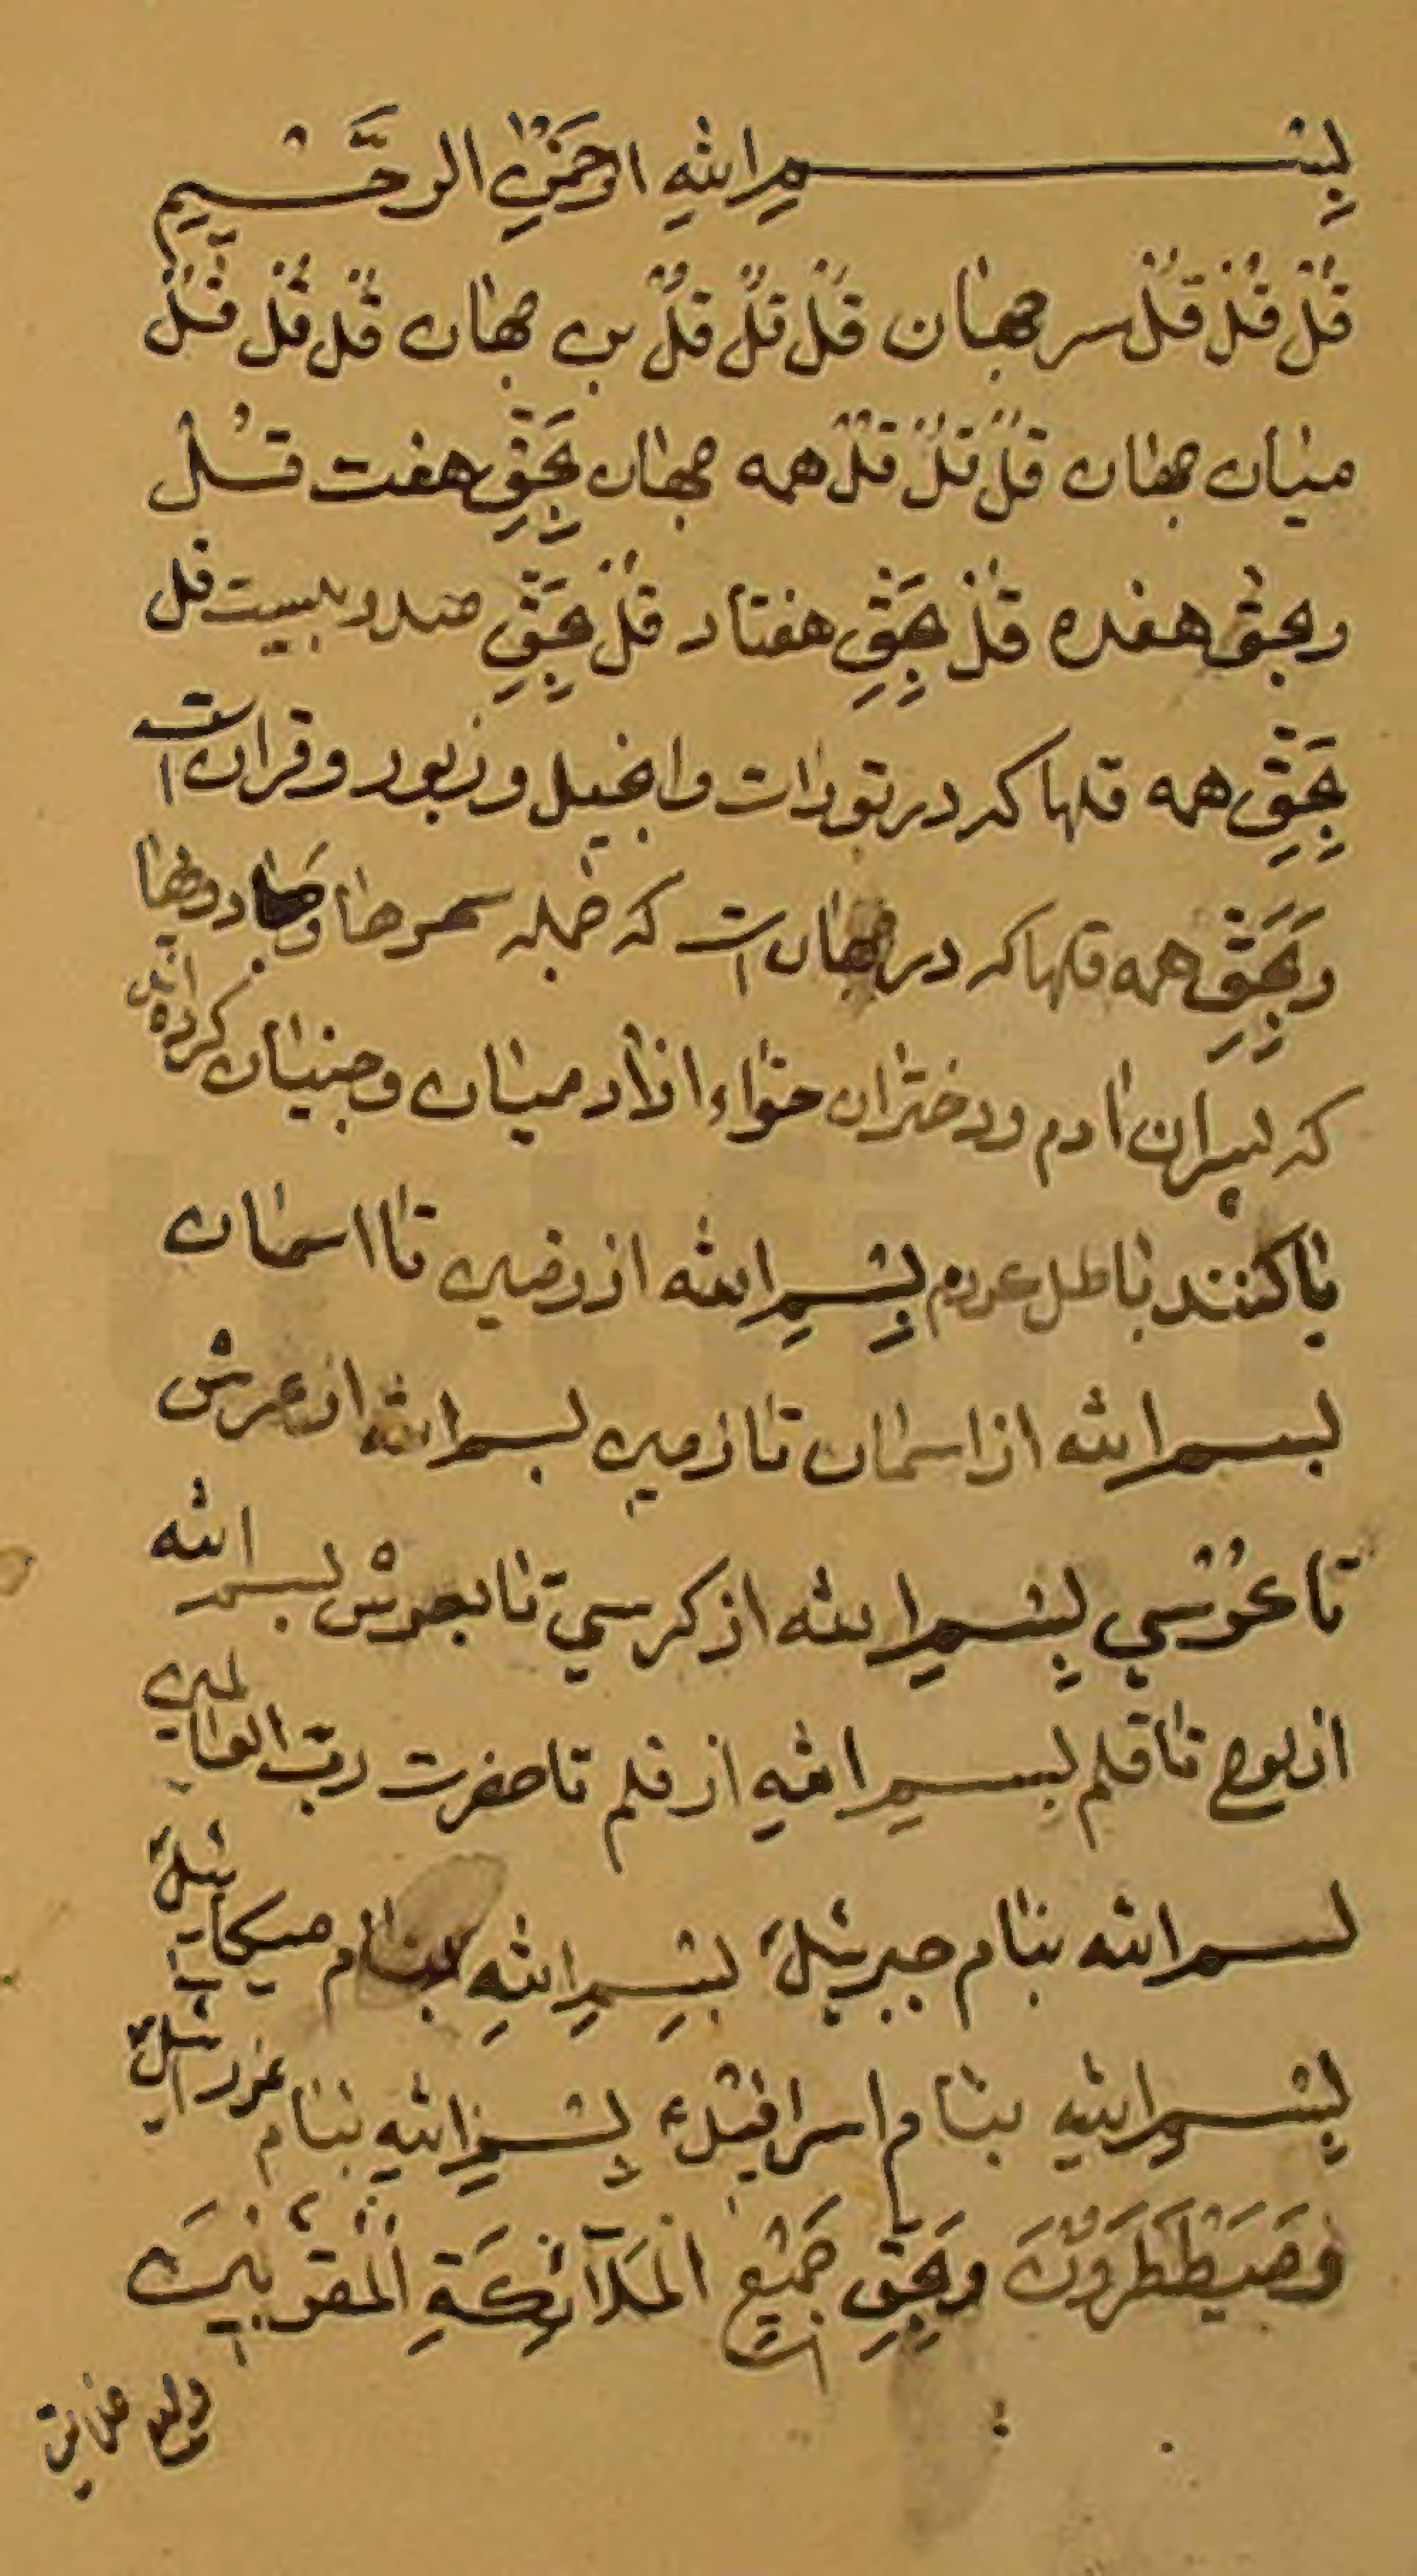 بِسْمِ اللهِ الرحمنِ الرَّحْيمِ
قُلْ قُلْ قُلْ سر جهان قُلْ قُلْ قُلْ بن جهان قُل قُل قُلْ
میان جهان قُلْ قُلْ قُلْ همه جهان بِحَقِّ هفت قُل
وبحق هفده قُلْ بِحَقِّ هفتاد قُلْ بِحَقِّ صد و بیست قل
بِحَقِّ همه قلها که در تورات وانجیل و زبور و قران است
وَبِحَقِّ همه قلها که در جهان است که جمله سحرها و
که پسران ادم ودختران حواء از ادمیان وجنیان کرده اند
یا کنند باطل کردم بِسْمِ الله از زمین تا اسمان
بسم الله از اسمان تا زمین بسم الله از عرش
تا بِسْمِ الله از کرسي تا بعرش بسم الله
از لوح تا قلم بسمِ اللهِ از قلم تا حضرت ربّ العالمین
بسم الله بنام جبرئیل بِسْمِ اللهِ بنام میکائیل
بِسْمِ اللهِ بنام اسرافیل بِسْمِ اللهِ بنام عزرائیل
وَبِحَقِّ جَمْیعِ الْمَلآئِکَةِ الْمُقَرَّبْینَ